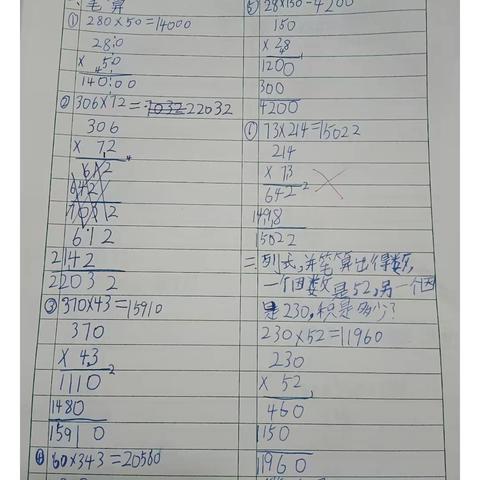 笔算
① 280×50=14000
280
× 50
14000
② 306×72=7032 22032
306
× 72
612
642
612
2142
22032
③ 370×43=15910
370
× 43
1110
1480
15910
④ 60×343=20580
⑤ 28×150=4200
150
× 28
1200
300
4200
⑥ 73×214=15022
214
× 73
642
1498
15022
二、列式,并笔算出得数,
一个因数是52,另一个因
是230,积是多少?
230×52=11960
230
× 52
460
1150
11960